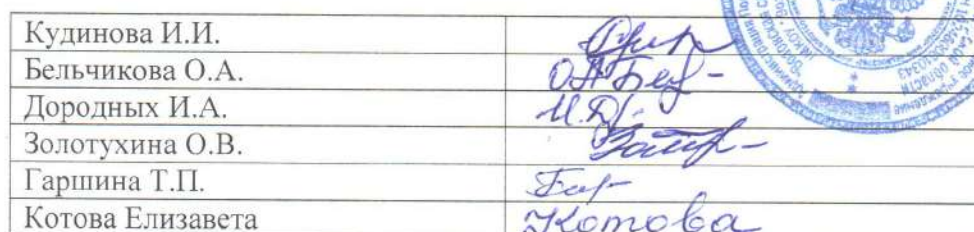 Кудинова И.И.
Бельчикова О.А. ОАБел-
Дородных И.А. И.Д.-
Золотухина О.В.
Гаршина Т.П. Гар-
Котова Елизавета Котова